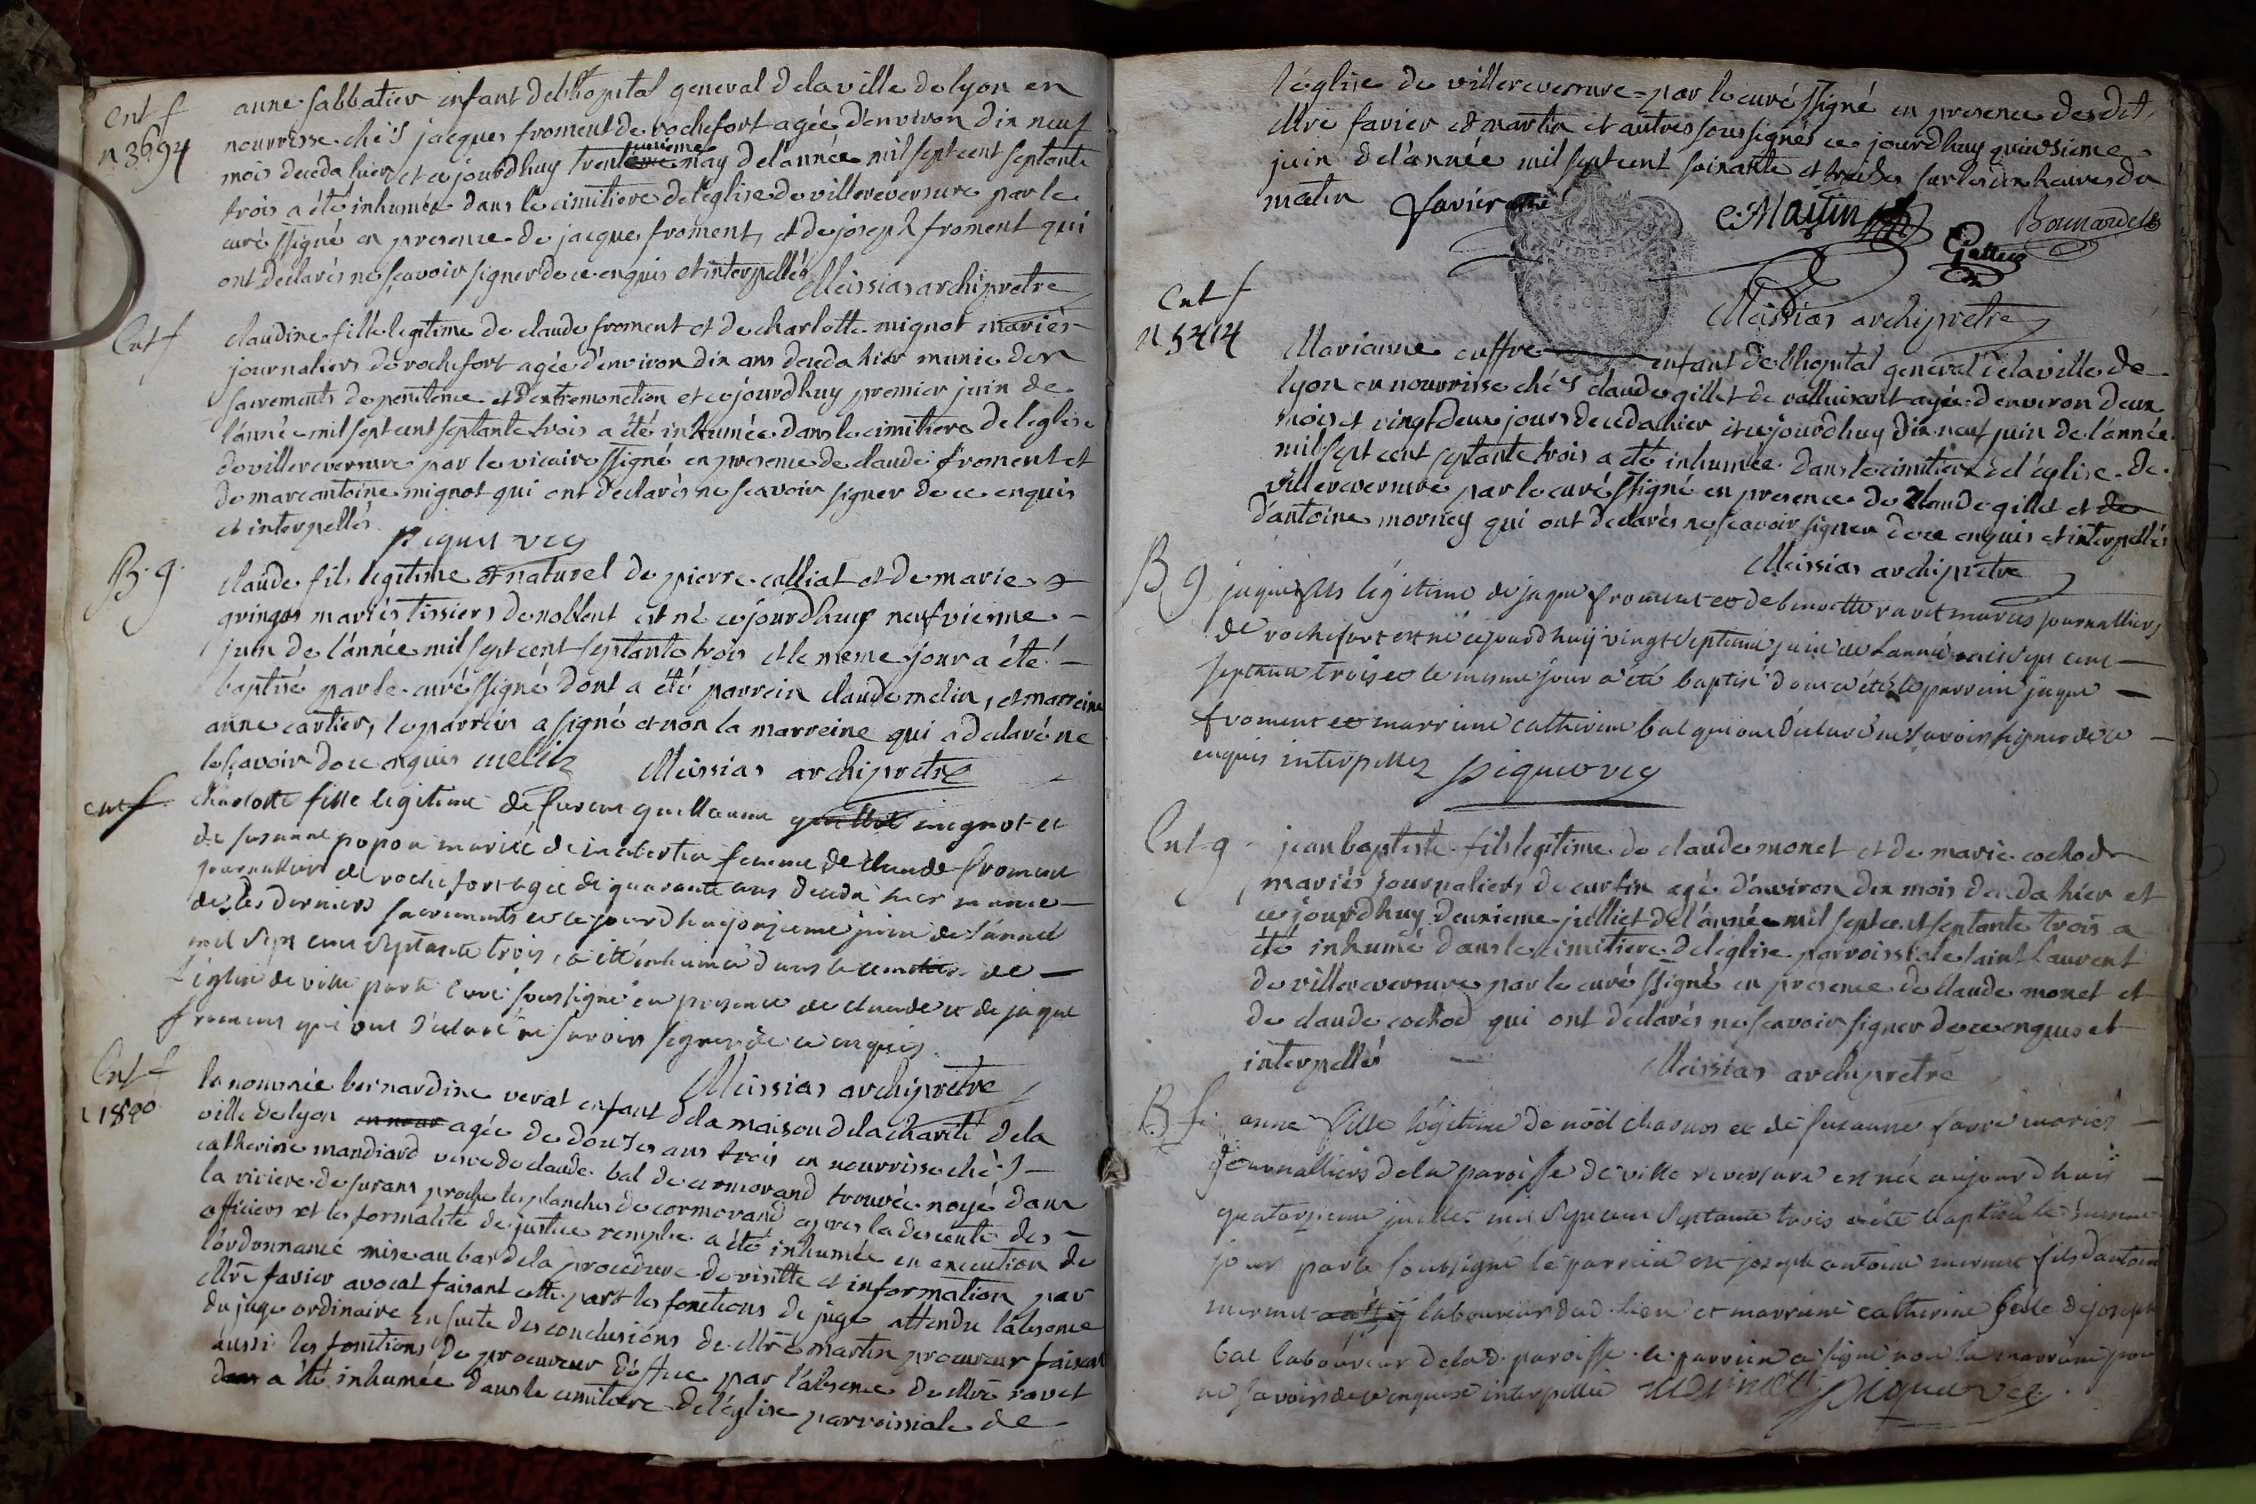 Ent f
n 3694
anne sabbatier enfant del'hopital general dela ville de lyon en
nourrisse chés jacques froment de rochefort agée d'environ dix neuf
mois deceda hier et cejourdhuy trentunieme may de l'année mil sept cent septante
trois a été inhumée dans le cimitiere de l'eglise de villereversure par le
curé ssigné en presence de jacques froment, et de joseph froment qui
ont declarés ne scavoir signer de ce enquis et interpellés
Meissias archipretre
Ent f
claudine fille legitime de claude froment et de charlotte mignot mariés
journaliers de rochefort agée d'environ dix ans deceda hier munie des
sacrements de penitence et d'extremonction et cejourdhuy premier juin de
l'année mil sept cent septante trois a été inhumée dans le cimitiere de l'eglise
de villereversure par le vicaire ssigné en presence de claude froment et
de marc antoine mignot qui ont declarés ne scavoir signer de ce enquis
et interpellés
piquet vic
B. g.
claude fils legitime et naturel de pierre calliat et de marie
gringos mariés tissiers de noblent est né cejourdhuy neufvieme
juin de l'année mil sept cent septante trois et le meme jour a été
baptisé par le curé ssigné dont a été parrein claude melin, et marreine
anne cartier, le parrein a signé et non la marreine qui a declaré ne
le scavoir de ce enquis melin Meissias archipretre
ent f
charlotte fille legitime de guillaume mignot et
de susanne popon mariée de femme de claude froment
journallier de rochefort agée de quarante ans deceda hier munie
des derniers sacrements et ce jourdhuy onzieme juin de l'année
mil sept cent septante trois, a été inhumée dans le cimetiere de
l'église de ville par le curé soussigné en presence de claude et de jaque
froment qui ont déclaré ne savoir signer de ce enquis
Meissias archipretre
Ent f
1840
la nommée bernardine verat enfant dela maison dela charité dela
ville de lyon agée de douzes ans trois en nourrisse chés
catherine mandiard veuve de claude bal de cormorand trouvée noyé dans
la riviere de surans proche les planches de cormorand apres la descente des
officiers et les formalité de justice remplie a été inhumée en execution de
l'ordonnance mise au bas dela procedure de visitte et information par
Mre favier avocat faisant cette part les fonctions de juge attendu l'absence
du juge ordinaire ensuite des conclusions de Mre martin procureur faisant
aussi les fonctions de procureur d'office par l'absence de Mre ravet
a été inhumée dans le cimitiere de l'église parroissiale de
l'église de villereversure par le curé ssigné en presence desdit,
Mre favier et martin et autres soussignés ce jourdhuy quinsieme
juin de l'année mil sept cent soixante et treises sur les dix heures du
matin favier
Martin
Bonnardet
Meissias archipretre
Ent f
n 5414
Marianne cuffre enfant de l'hopital general dela ville de
lyon en nourrisse chés claude gillet de agée d'environ deux
mois et vingt deux jours deceda hier et cejourdhuy dix neuf juin de l'année
mil sept cent septante trois a été inhumée dans le cimitiere de l'église de
villereversure par le curé ssigné en presence de claude gillet et de
d'antoine morney qui ont declarés ne scavoir signer de ce enquis et interpellés
Meissias archipretre
B g
jaque fils légitime de jaque froment et de benoitte ravet mariés journalliers
de rochefort est né cejourdhuy vingt septieme juin de l'année mil sept cent
septante trois et le mesme jour a été baptisé dont a été le parrein jaque
froment et marreine catherine bal qui ont déclaré ne savoir signer de ce
enquis interpellez piquet vic
Ent g
jean baptiste fils legitime de claude monet et de marie cochod
mariés journaliers de curtin agé d'environ dix mois deceda hier et
ce jourdhuy deuxieme julliet de l'année mil sept cent septante trois a
été inhumé dans le cimitiere de l'eglise parroissiale saint laurent
de villereversure par le curé ssigné en presence de claude monet et
de claude cochod qui ont declarés ne scavoir signer de ce enquis et
interpellé
Meissias archipretre
B. f.
anne fille légitime de noël et de susanne favre mariés
journalliers de la paroisse de ville reversure est née aujourdhuy
quatorzieme juillet mil sept cent septante trois a été baptisée le mesme
jour par le soussigné le parrein est joseph antoine mermet fils d'antoine
mermet laboureur dud. lieu et marreine catherine fille de joseph
bal laboureur de la d. paroisse le parrein a signé non la marreine pour
ne savoir de ce enquise interpellée mermet piquet vic.